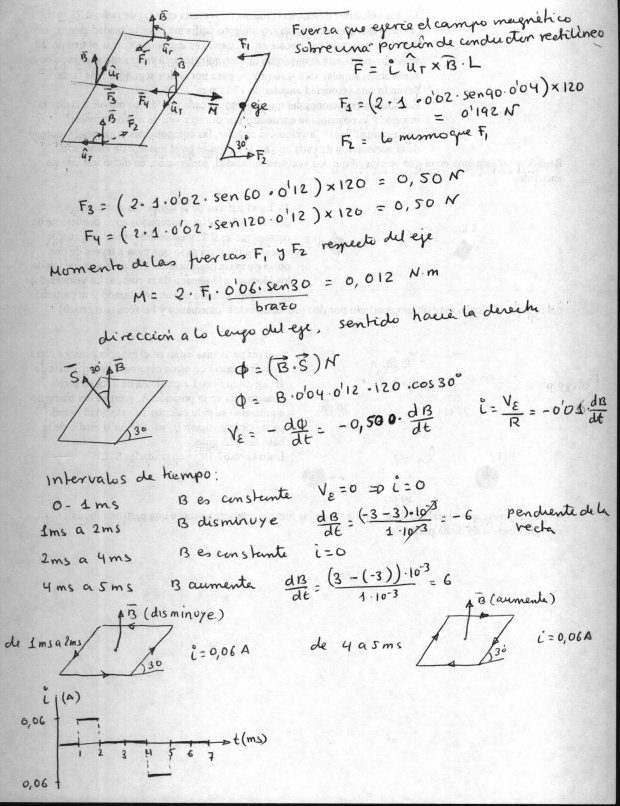 B
ûr F1
B B F1
ûr ûr
F3 F4 M
B F2 eje
ûr 30° F2
Fuerza que ejerce el campo magnético
sobre una porción de conductor rectilíneo
F = i ûr × B · L
F1 = (2 · 1 · 0'02 · sen 90 · 0'04) × 120
= 0'192 N
F2 = lo mismo que F1
F3 = (2 · 1 · 0'02 · sen 60 · 0'12) × 120 = 0,50 N
F4 = (2 · 1 · 0'02 · sen 120 · 0'12) × 120 = 0,50 N
Momento de las fuerzas F1 y F2 respecto del eje
M = 2 · F1 · 0'06 · sen 30 = 0,012 N·m
brazo
dirección a lo largo del eje, sentido hacia la derecha
S 30° B
30
Φ = (B · S) N
Φ = B · 0'04 · 0'12 · 120 · cos 30°
Vε = - dΦ/dt = -0,500 · dB/dt i = Vε/R = -0'01 · dB/dt
Intervalos de tiempo:
0 - 1 ms B es constante Vε = 0 ⇒ i = 0
1ms a 2ms B disminuye dB/dt = (-3-3)·10⁻³/1·10⁻³ = -6 pendiente de la recta
2ms a 4ms B es constante i = 0
4 ms a 5ms B aumenta dB/dt = (3-(-3))·10⁻³/1·10⁻³ = 6
B (disminuye) B (aumenta)
de 1ms a 2ms 30 i = 0,06 A de 4 a 5ms 30 i = 0,06 A
i (A)
0,06
1 2 3 4 5 6 7 t (ms)
0,06